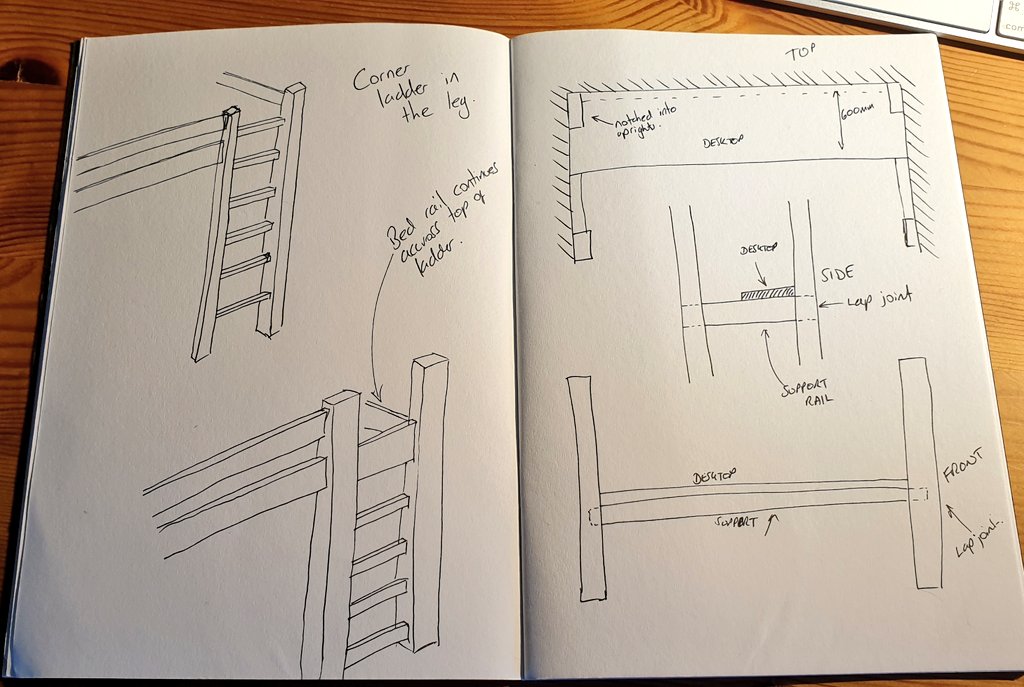 Corner
ladder in
the leg.
Bed rail continues
accross top of
ladder.
TOP
notched into
uprights.
600mm
DESKTOP
DESKTOP
SIDE
Lap joint
SUPPORT
RAIL
DESKTOP
FRONT
SUPPORT
Lap joint.
⌘
com